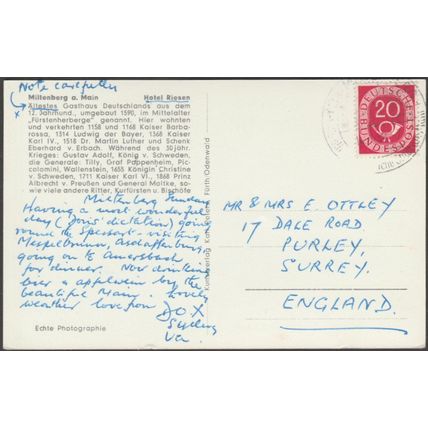 Note carefully
Miltenberg a. Main Hotel Riesen
x Ältestes Gasthaus Deutschlands aus dem
12. Jahrhundert, umgebaut 1590, im Mittelalter
„Fürstenherberge" genannt. Hier wohnten
und verkehrten 1158 und 1168 Kaiser Barba-
rossa, 1314 Ludwig der Bayer, 1368 Kaiser
Karl IV., 1518 Dr. Martin Luther und Schenk
Eberhard v. Erbach. Während des 30jähr.
Krieges: Gustav Adolf, König v. Schweden,
die Generale: Tilly, Graf Pappenheim, Pic-
colomini, Wallenstein, 1705 Königin Christine
v. Schweden, 1711 Kaiser Karl VI., 1868 Prinz
Albrecht v. Preußen und General Moltke, so-
wie viele andere Ritter, Kurfürsten u. Bischöfe
Miltenberg Sunday
Having a most wonderful
day (Jon's dictation) going
round the Spessart - visiting
Mespelbrunn, Aschaffenburg,
going on to Amorbach
for dinner. Now drinking
beer & apfelwein by the
beautiful Main. Lovely
weather love from
Echte Photographie
Kunstverlag Fürth Odenwald
DEUTSCHE
BUNDESPOST
20
MR & MRS E. OTTLEY
17 DALE ROAD
PURLEY,
SURREY.
ENGLAND.